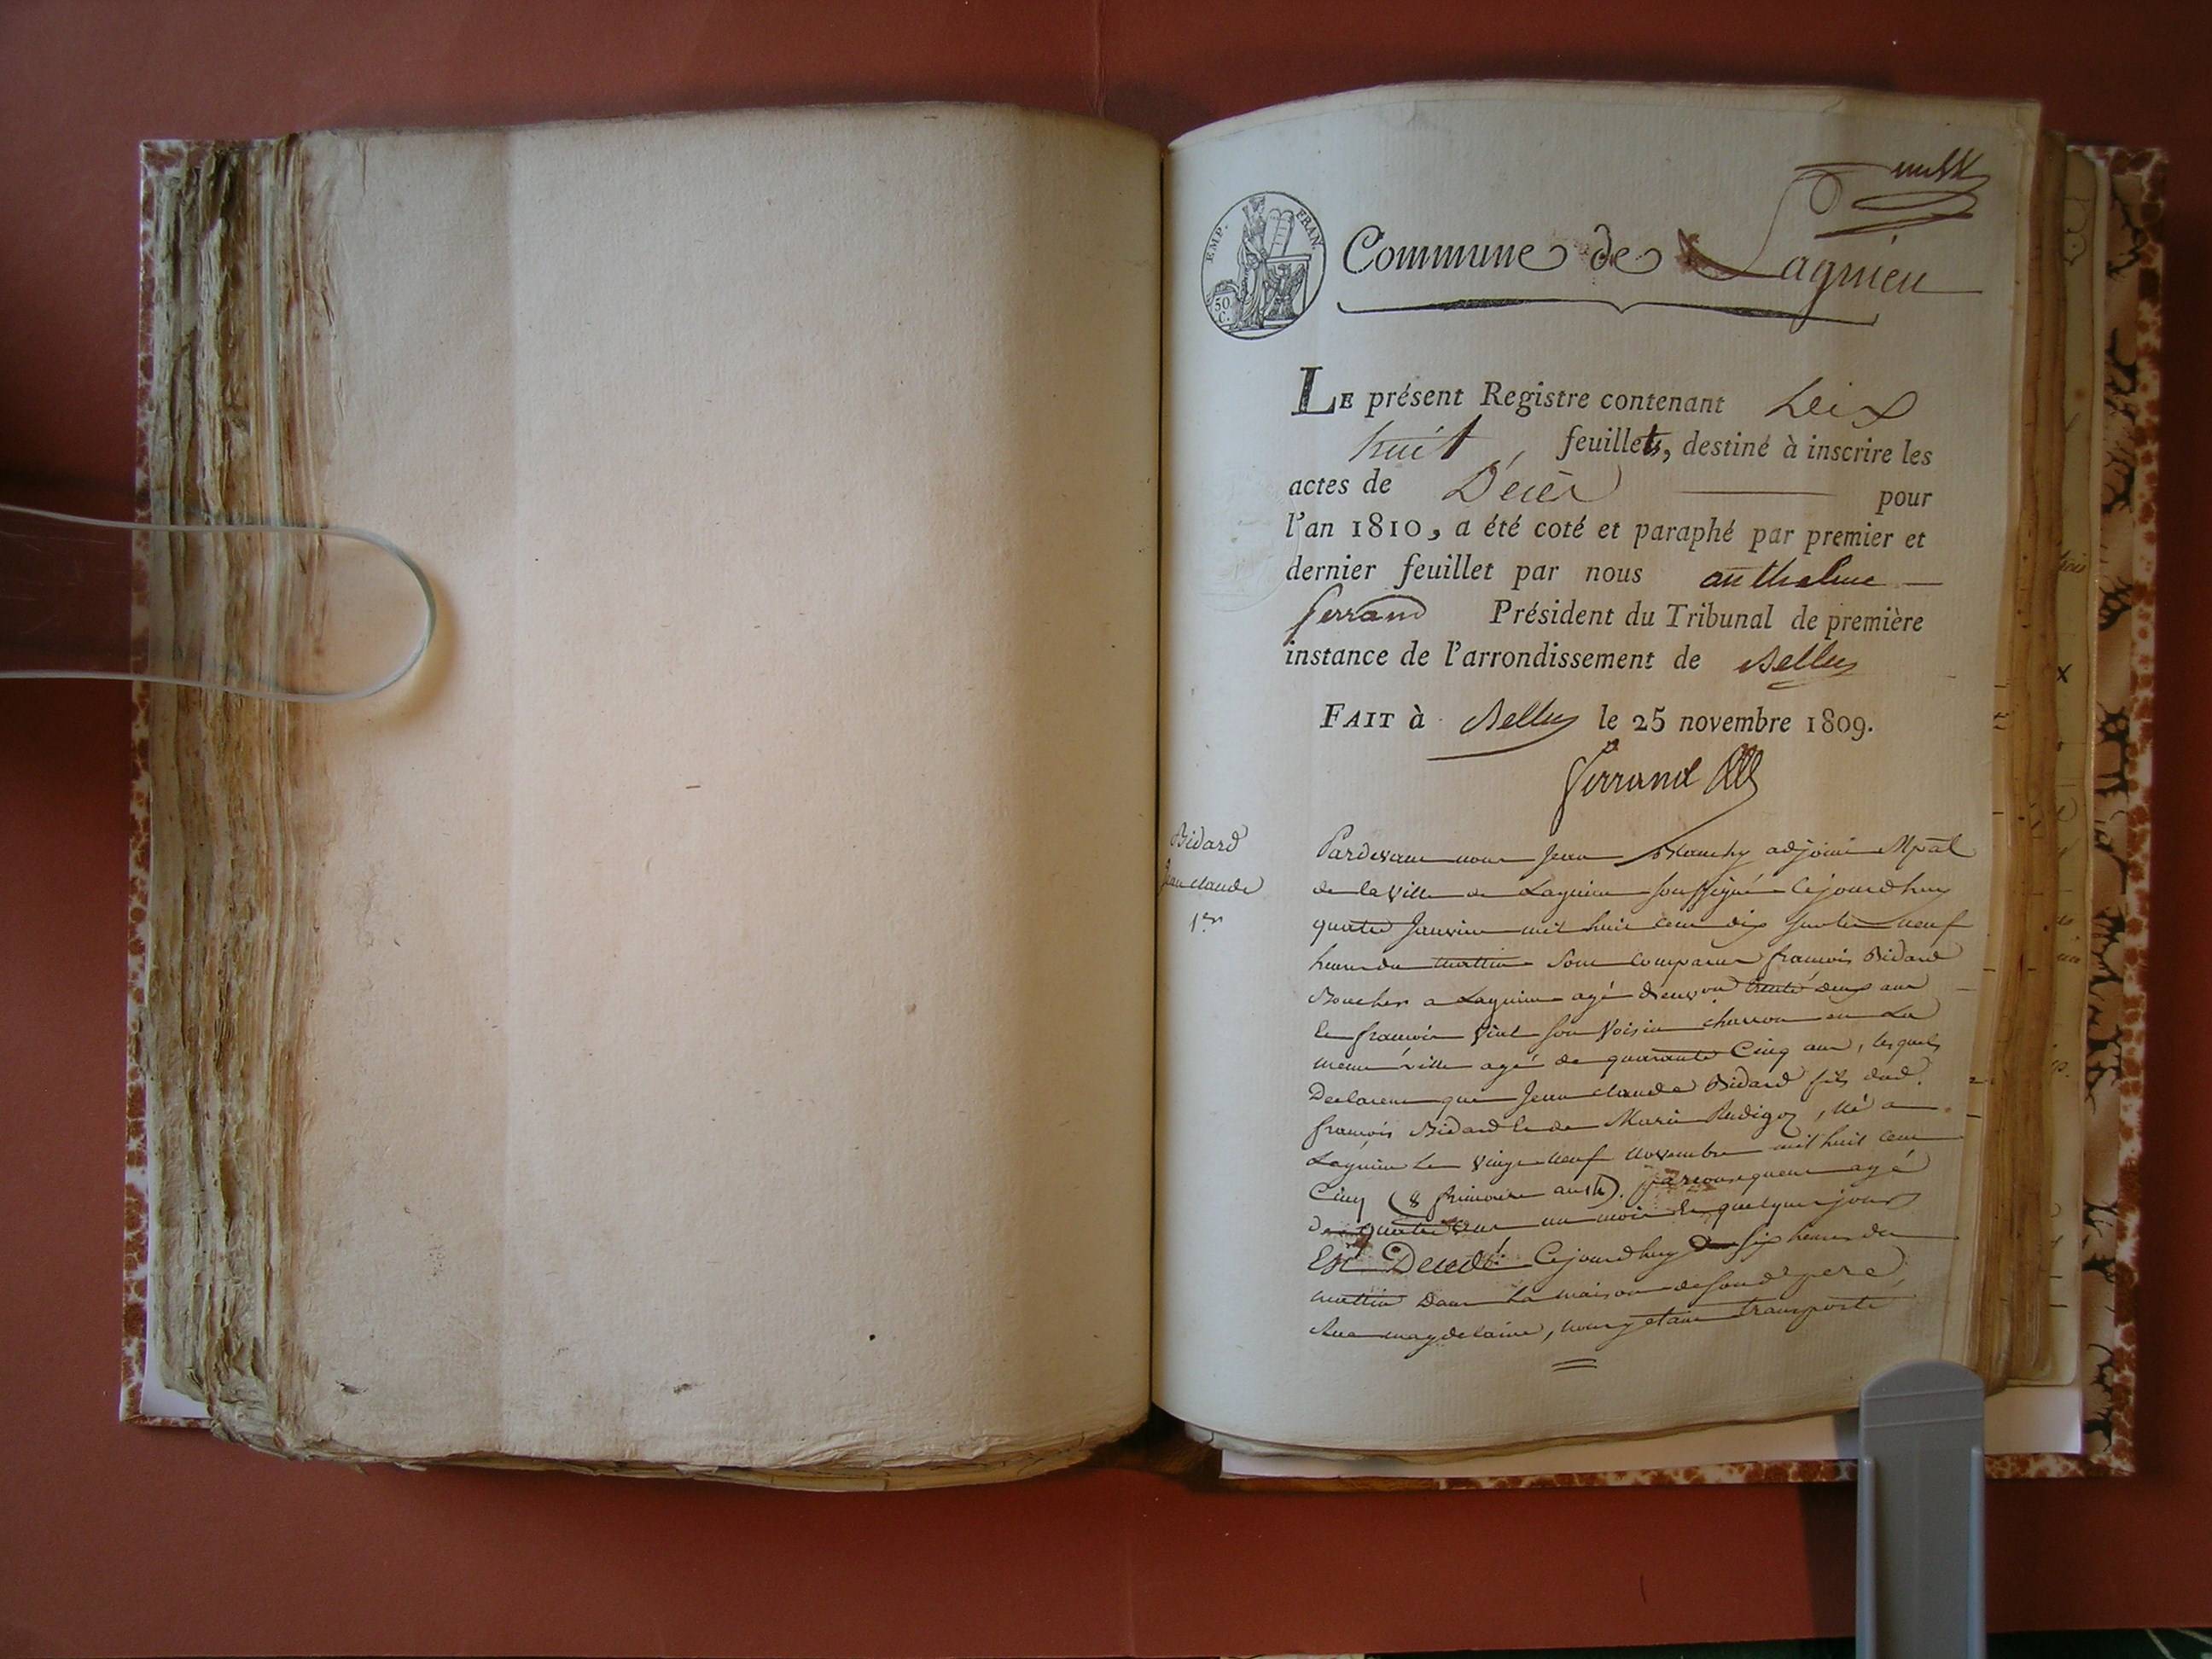 EMP. FRAN.
50 C.
Commune de Lagnieu
LE présent Registre contenant Deix
huit feuillets, destiné à inscrire les
actes de Décès pour
l'an 1810, a été coté et paraphé par premier et
dernier feuillet par nous anthelme
ferrand Président du Tribunal de première
instance de l'arrondissement de Belley
FAIT à Belley le 25 novembre 1809.
Ferrand
Bidard
Jean claude
1er
Pardevant nous Jean Blanchy adjoint Mpal
de la Ville de Lagnieu soussigné Cejourdhuy
quatre Janvier mil huit cent dix sur les neuf
heures du mattin sont comparus francois Bidard
Boucher a Lagnieu agé d'environ trente deux ans
Et francois Vial son Voisin charron en La
meme ville agé de quarante Cinq ans, lesquels
Declarent que Jean claude Bidard fils dud.
francois Bidard Et de Marie Rudigoz, Né a
Lagnieu Le vingt neuf Novembre mil huit cent
Cinq (8 frimaire an 14). par consequent agé
de quatre ans un mois Et quelques jours
Est Decedé Cejourdhuy six heures du
mattin Dans La maison de son d. pere,
Rue magdelaine, nous y etant transporté